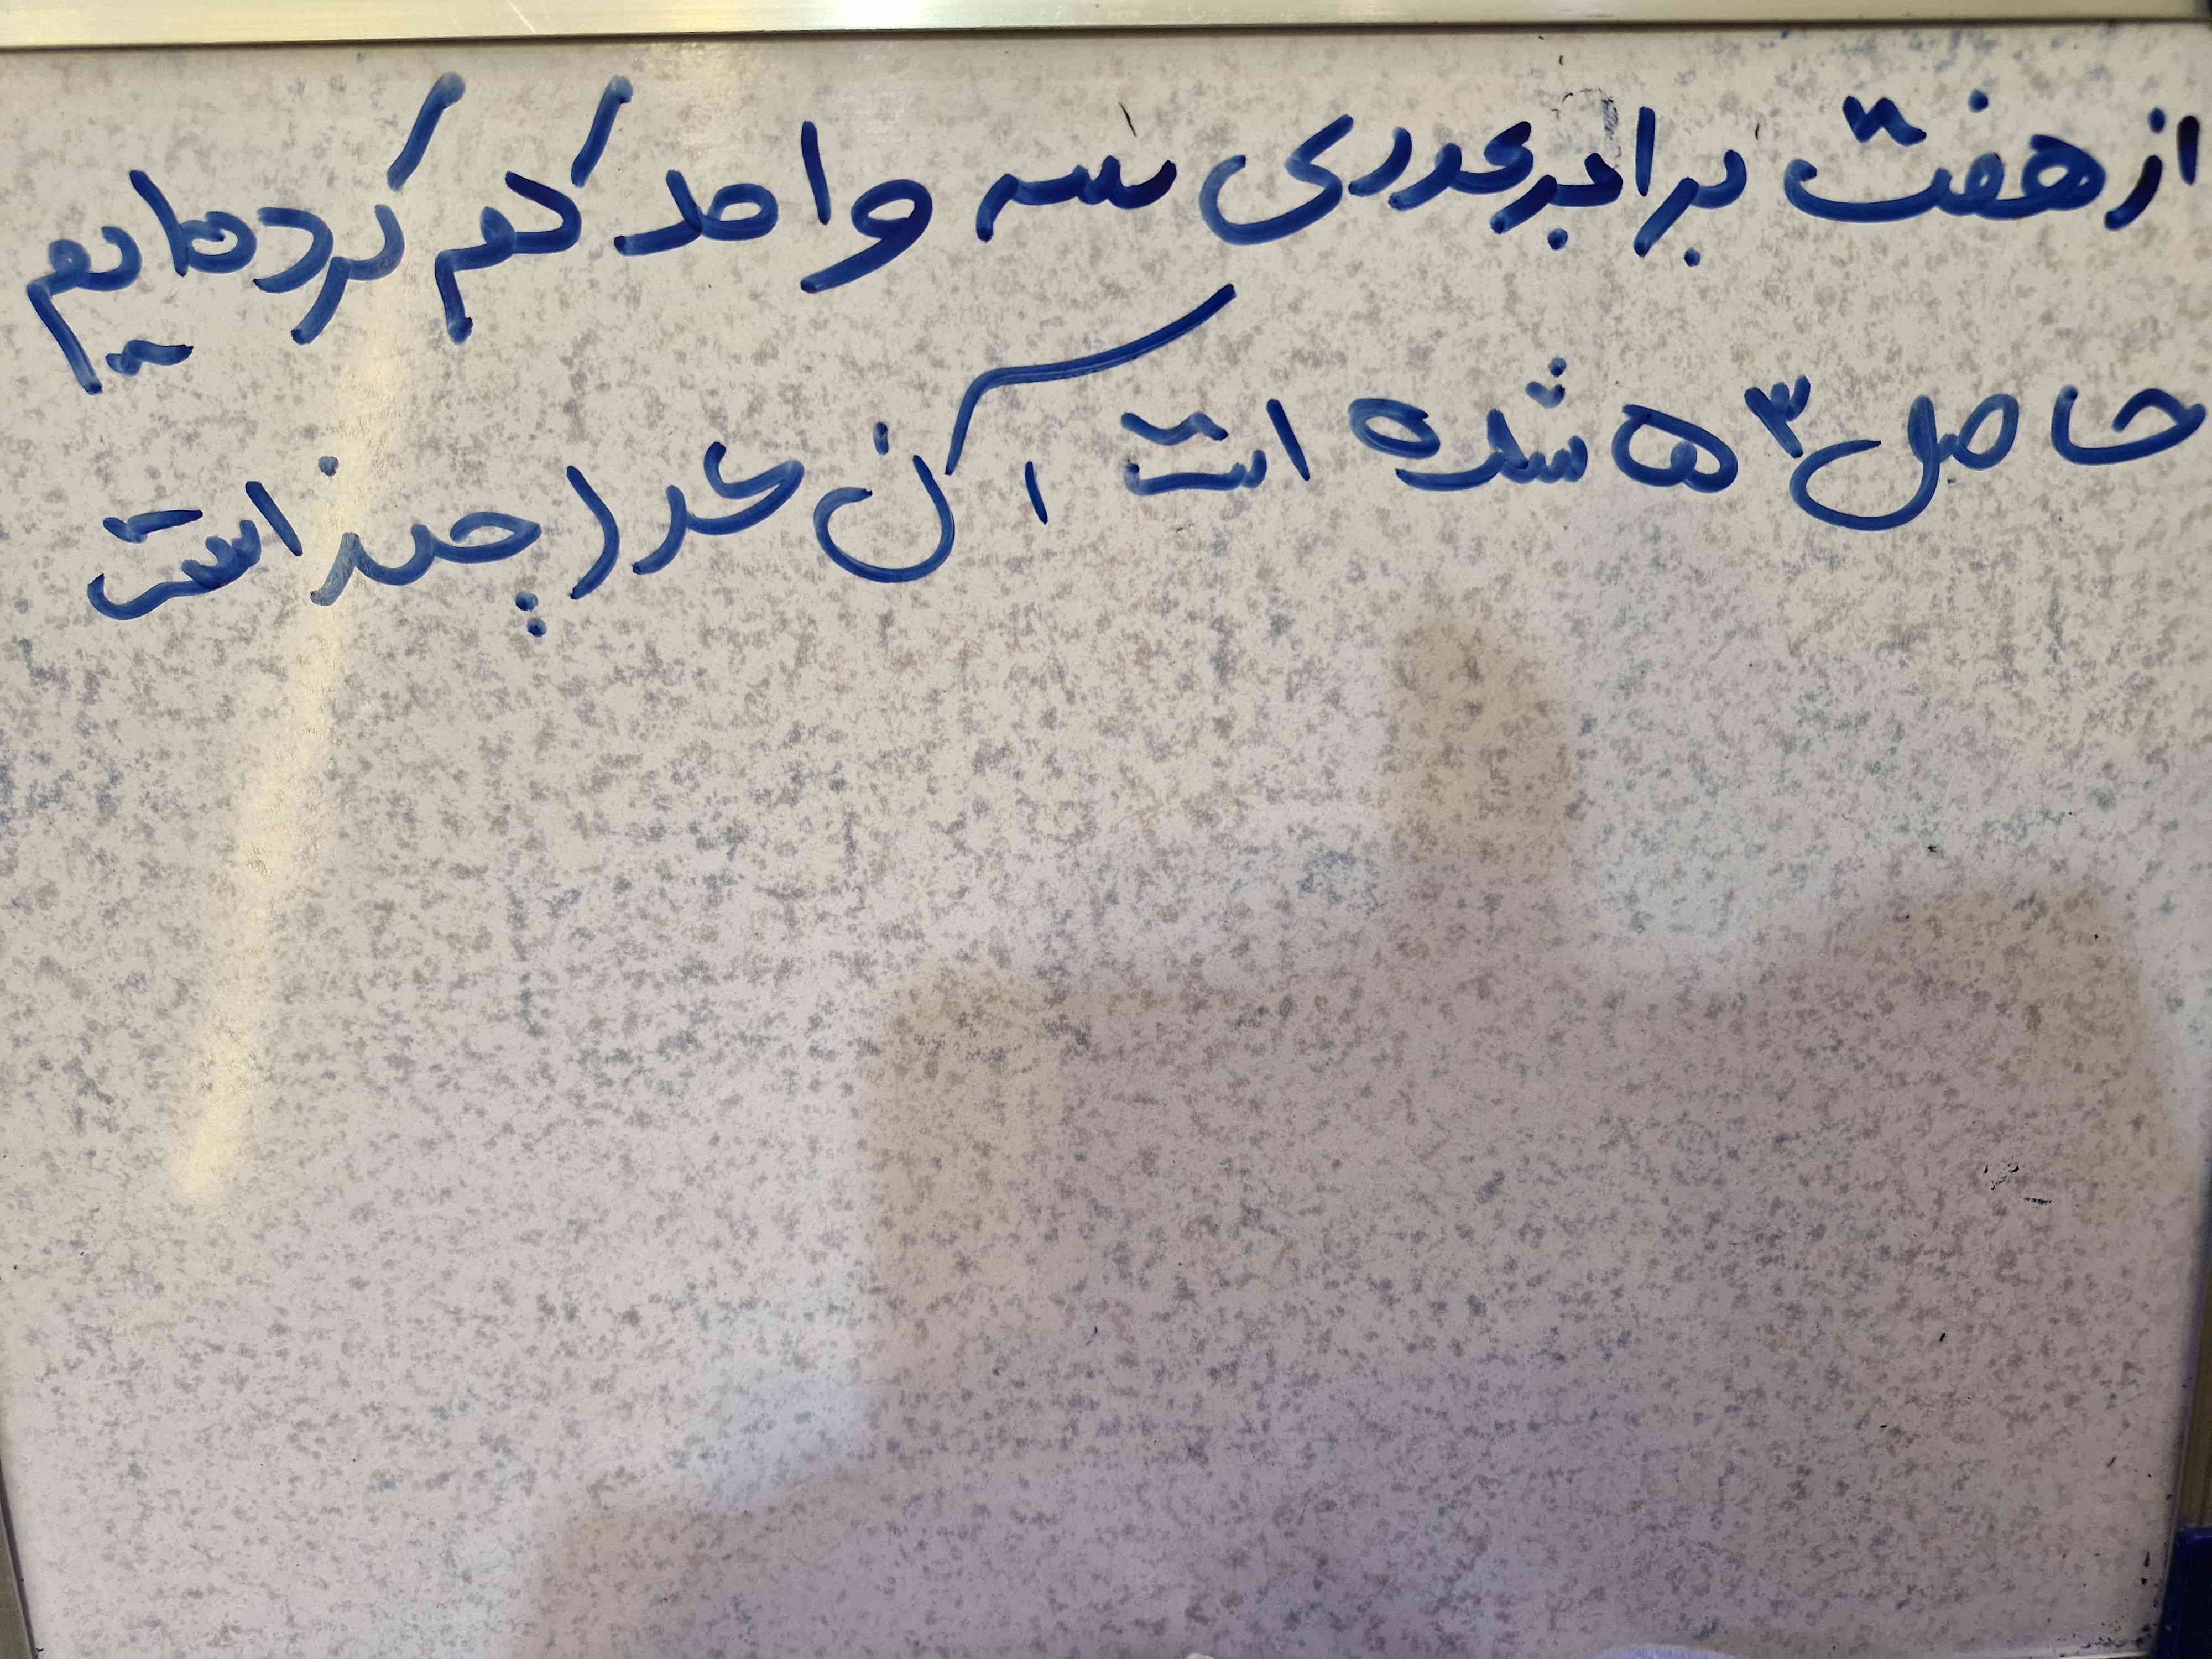 از هفت برابر عددی سه واحد کم کرده‌ایم
حاصل ۳۵ شده است آن عدد چند است